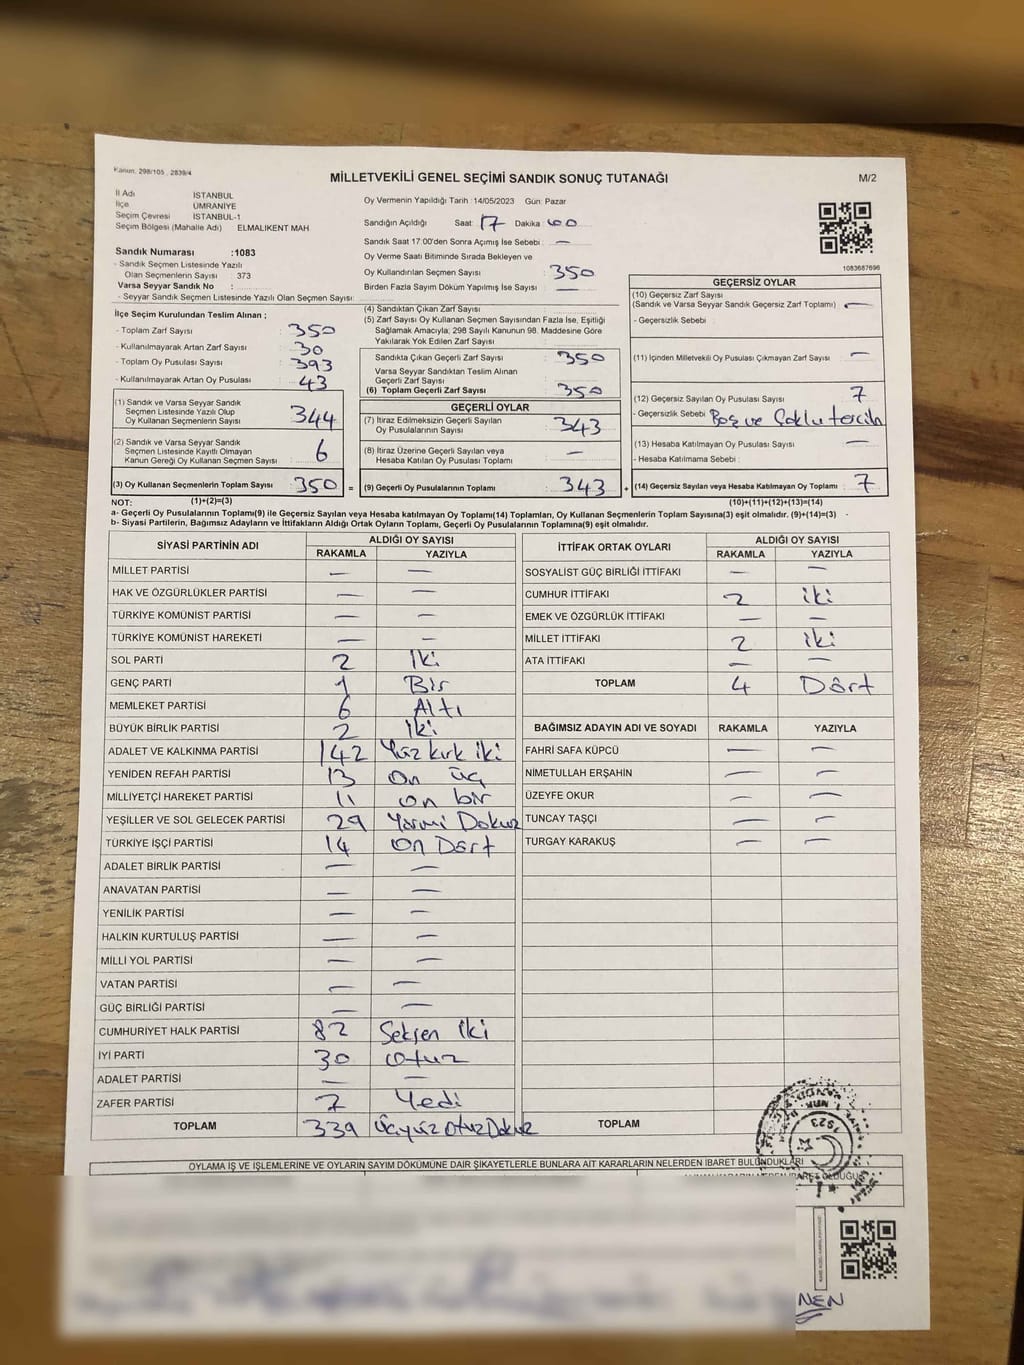 Kanun. 298/105 , 2839/4
MİLLETVEKİLİ GENEL SEÇİMİ SANDIK SONUÇ TUTANAĞI
M/2
İl Adı İSTANBUL
İlçe ÜMRANİYE
Seçim Çevresi İSTANBUL-1
Seçim Bölgesi (Mahalle Adı) ELMALIKENT MAH
Sandık Numarası :1083
- Sandık Seçmen Listesinde Yazılı
Olan Seçmenlerin Sayısı : 373
Varsa Seyyar Sandık No :
- Seyyar Sandık Seçmen Listesinde Yazılı Olan Seçmen Sayısı:
Oy Vermenin Yapıldığı Tarih :14/05/2023 Gün: Pazar
Sandığın Açıldığı Saat: 17 Dakika : 00
Sandık Saat 17.00'den Sonra Açımış İse Sebebi : —
Oy Verme Saati Bitiminde Sırada Bekleyen ve
Oy Kullandırılan Seçmen Sayısı : 350
Birden Fazla Sayım Döküm Yapılmış İse Sayısı : —
1083687696
İlçe Seçim Kurulundan Teslim Alınan ;
- Toplam Zarf Sayısı : 350
- Kullanılmayarak Artan Zarf Sayısı : 30
- Toplam Oy Pusulası Sayısı : 393
- Kullanılmayarak Artan Oy Pusulası : 43
(1) Sandık ve Varsa Seyyar Sandık
Seçmen Listesinde Yazılı Olup
Oy Kullanan Seçmenlerin Sayısı : 344
(2) Sandık ve Varsa Seyyar Sandık
Seçmen Listesinde Kayıtlı Olmayan
Kanun Gereği Oy Kullanan Seçmen Sayısı : 6
(3) Oy Kullanan Seçmenlerin Toplam Sayısı : 350 =
(4) Sandıktan Çıkan Zarf Sayısı :
(5) Zarf Sayısı Oy Kullanan Seçmen Sayısından Fazla İse, Eşitliği
Sağlamak Amacıyla; 298 Sayılı Kanunun 98. Maddesine Göre
Yakılarak Yok Edilen Zarf Sayısı :
Sandıkta Çıkan Geçerli Zarf Sayısı : 350
Varsa Seyyar Sandıktan Teslim Alınan
Geçerli Zarf Sayısı : —
(6) Toplam Geçerli Zarf Sayısı : 350
GEÇERLİ OYLAR
(7) İtiraz Edilmeksizin Geçerli Sayılan
Oy Pusulalarının Sayısı : 343
(8) İtiraz Üzerine Geçerli Sayılan veya
Hesaba Katılan Oy Pusulası Toplamı : —
(9) Geçerli Oy Pusulalarının Toplamı : 343 +
GEÇERSİZ OYLAR
(10) Geçersiz Zarf Sayısı
(Sandık ve Varsa Seyyar Sandık Geçersiz Zarf Toplamı) : —
- Geçersizlik Sebebi :
(11) İçinden Milletvekili Oy Pusulası Çıkmayan Zarf Sayısı : —
(12) Geçersiz Sayılan Oy Pusulası Sayısı : 7
- Geçersizlik Sebebi : Boş ve Çoklu tercih
(13) Hesaba Katılmayan Oy Pusulası Sayısı : —
- Hesaba Katılmama Sebebi :
(14) Geçersiz Sayılan veya Hesaba Katılmayan Oy Toplamı : 7
NOT: (1)+(2)=(3) (10)+(11)+(12)+(13)=(14)
a- Geçerli Oy Pusulalarının Toplamı(9) ile Geçersiz Sayılan veya Hesaba Katılmayan Oy Toplamı(14) Toplamları, Oy Kullanan Seçmenlerin Toplam Sayısına(3) eşit olmalıdır. (9)+(14)=(3)
b- Siyasi Partilerin, Bağımsız Adayların ve İttifakların Aldığı Ortak Oyların Toplamı, Geçerli Oy Pusulalarının Toplamına(9) eşit olmalıdır.
SİYASİ PARTİNİN ADI ALDIĞI OY SAYISI
RAKAMLA YAZIYLA
MİLLET PARTİSİ — —
HAK VE ÖZGÜRLÜKLER PARTİSİ — —
TÜRKİYE KOMÜNİST PARTİSİ — —
TÜRKİYE KOMÜNİST HAREKETİ — —
SOL PARTİ 2 İki
GENÇ PARTİ 1 Bir
MEMLEKET PARTİSİ 6 Altı
BÜYÜK BİRLİK PARTİSİ 2 İki
ADALET VE KALKINMA PARTİSİ 142 Yüz kırk iki
YENİDEN REFAH PARTİSİ 13 On üç
MİLLİYETÇİ HAREKET PARTİSİ 11 on bir
YEŞİLLER VE SOL GELECEK PARTİSİ 29 Yirmi Dokuz
TÜRKİYE İŞÇİ PARTİSİ 14 On Dört
ADALET BİRLİK PARTİSİ — —
ANAVATAN PARTİSİ — —
YENİLİK PARTİSİ — —
HALKIN KURTULUŞ PARTİSİ — —
MİLLİ YOL PARTİSİ — —
VATAN PARTİSİ — —
GÜÇ BİRLİĞİ PARTİSİ — —
CUMHURİYET HALK PARTİSİ 82 Seksen iki
İYİ PARTİ 30 Otuz
ADALET PARTİSİ — —
ZAFER PARTİSİ 7 Yedi
TOPLAM 339 Üçyüz Otuz Dokuz
İTTİFAK ORTAK OYLARI ALDIĞI OY SAYISI
RAKAMLA YAZIYLA
SOSYALİST GÜÇ BİRLİĞİ İTTİFAKI — —
CUMHUR İTTİFAKI 2 iki
EMEK VE ÖZGÜRLÜK İTTİFAKI — —
MİLLET İTTİFAKI 2 iki
ATA İTTİFAKI — —
TOPLAM 4 Dört
BAĞIMSIZ ADAYIN ADI VE SOYADI RAKAMLA YAZIYLA
FAHRİ SAFA KÜPCÜ — —
NİMETULLAH ERŞAHİN — —
ÜZEYFE OKUR — —
TUNCAY TAŞÇI — —
TURGAY KARAKUŞ — —
TOPLAM
1923
OYLAMA İŞ VE İŞLEMLERİNE VE OYLARIN SAYIM DÖKÜMÜNE DAİR ŞİKAYETLERLE BUNLARA AİT KARARLARIN NELERDEN İBARET BULUNDUKLARI